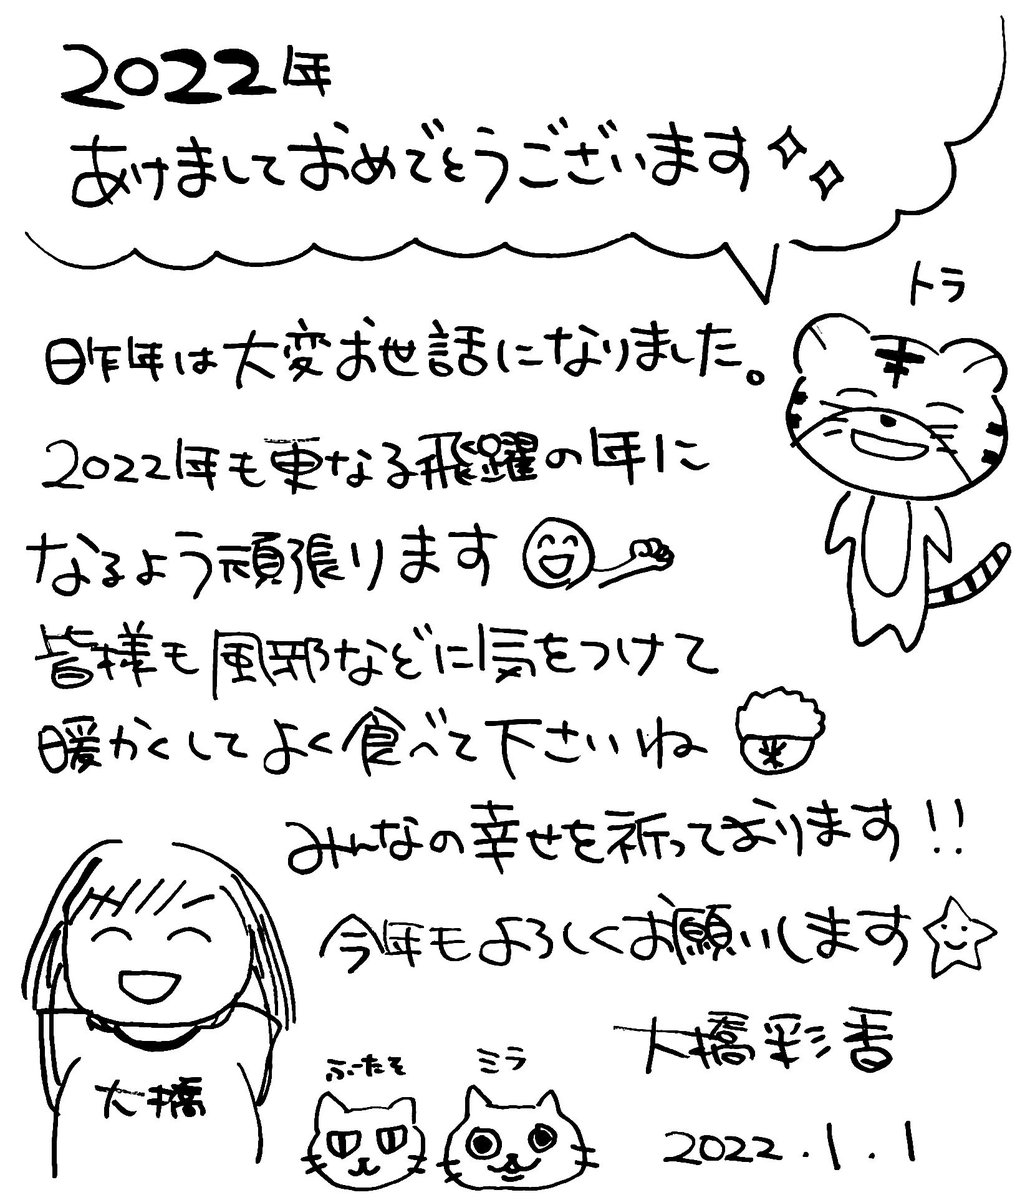 2022年
あけましておめでとうございます
トラ
昨年は大変お世話になりました。
2022年も更なる飛躍の年に
なるよう頑張ります
皆様も風邪などに気をつけて
暖かくしてよく食べて下さいね
米
みんなの幸せを祈っております!!
今年もよろしくお願いします
大橋彩香
大橋
ふーたそ
ミラ
2022.1.1